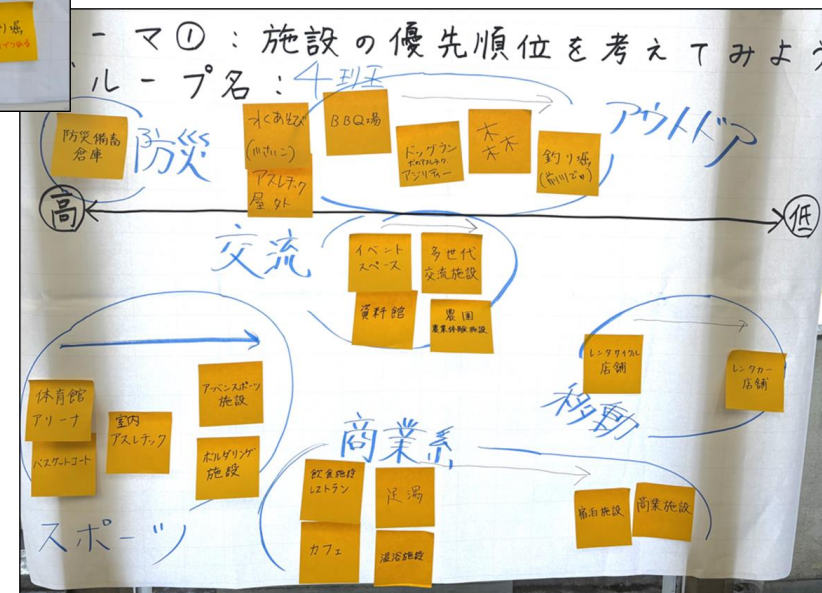 り堀
ーマ①:施設の優先順位を考えてみよう
ループ名:4班
防災備蓄
倉庫
防災
水あそび
アスレチック
屋外
BBQ場
ドッグラン
アジリティー
木
木木
釣り堀
アウトドア
高
低
交流
イベント
スペース
多世代
交流施設
資料館
農園
農業体験施設
レンタサイクル
店舗
レンタカー
店舗
移動
体育館
アリーナ
バスケットコート
室内
アスレチック
アーバンスポーツ
施設
ボルダリング
施設
スポーツ
商業系
飲食施設
レストラン
足湯
カフェ
温浴施設
宿泊施設
商業施設